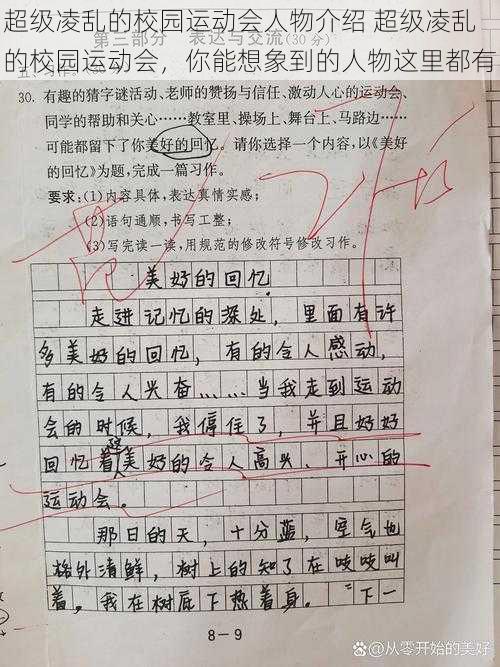 超级凌乱的校园运动会人物介绍 超级凌乱
的校园运动会，你能想象到的人物这里都有
第三部分 表达与交流(30分)
30. 有趣的猜字谜活动、老师的赞扬与信任、激动人心的运动会、
同学的帮助和关心……教室里、操场上、舞台上、马路边……
可能都留下了你美好的回忆。请你选择一个内容,以《美好
的回忆》为题,完成一篇习作。
要求:(1)内容具体,表达真情实感;
(2)语句通顺,书写工整;
(3)写完读一读,用规范的修改符号修改习作。
美好的回忆
走进记忆的深处，里面有许
多美好的回忆，有的令人感动，
有的令人兴奋……当我走到运动
会的时候，我停住了，并且好好
回忆着这美好的令人高兴、开心的
运动会。
那日的天，十分蓝，空气也
格外清鲜，树上的知了在吱吱叫
着，我在树底下热着身。"下一
8-9
@从零开始的美好